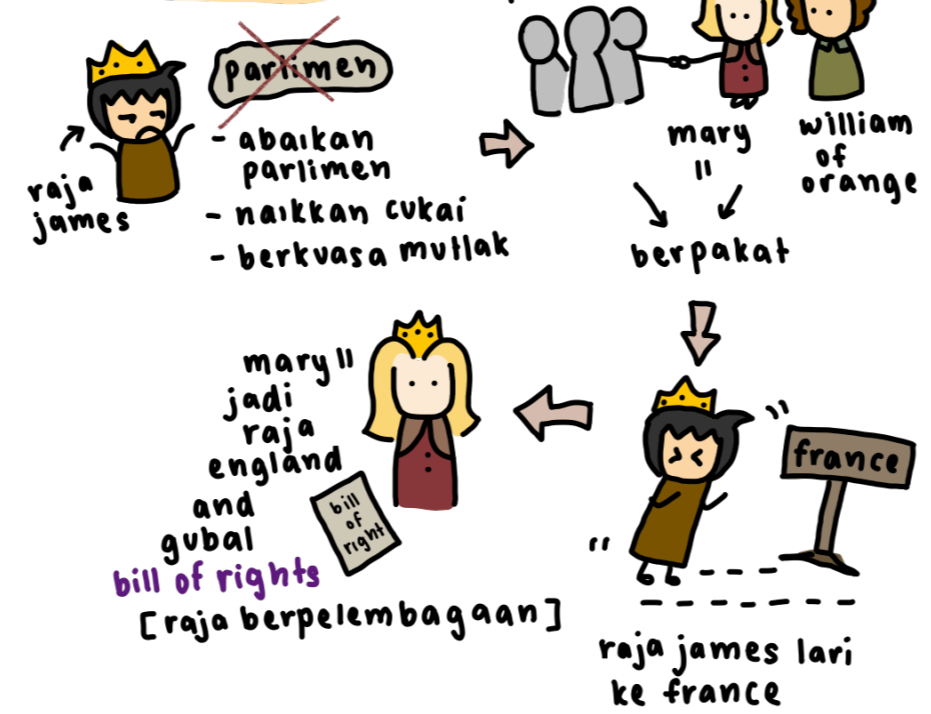 parlimen
raja
james
- abaikan
parlimen
- naikkan cukai
- berkuasa mutlak
mary
II
william
of
orange
berpakat
france
raja james lari
ke france
mary II
jadi
raja
england
and
gubal
bill of rights
[raja berpelembagaan]
bill
of
right